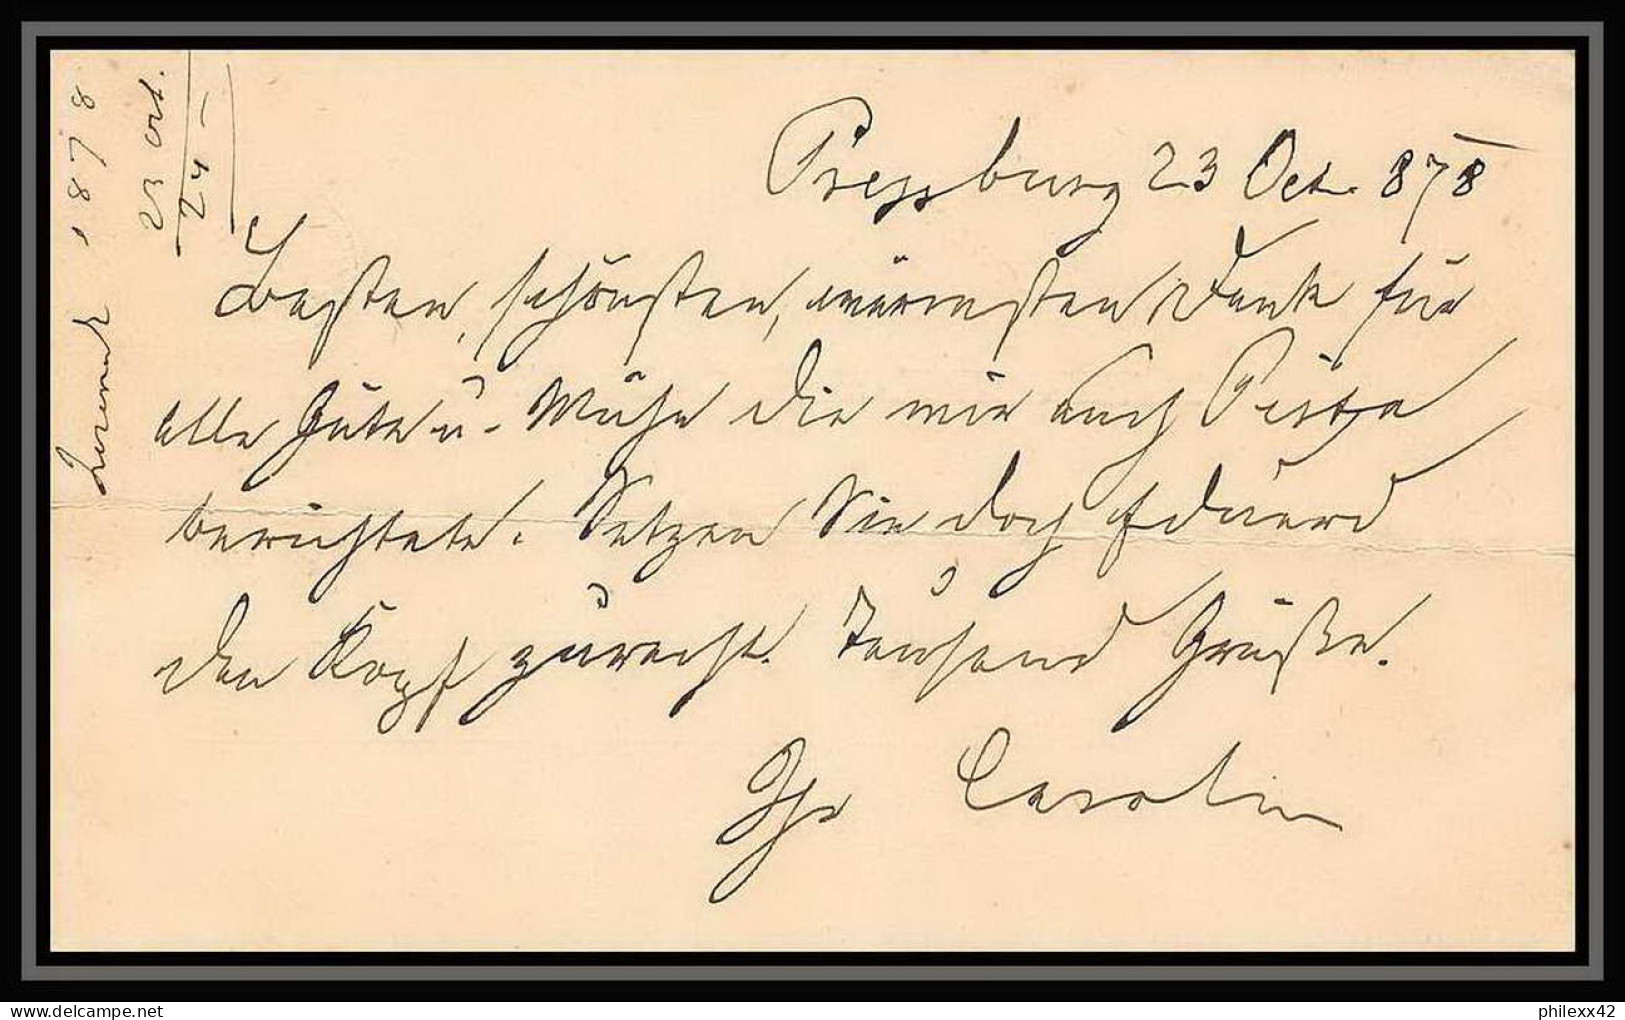 Pressburg 23 Oct. 878
Besten, schönsten, wärmsten Dank für
alle Güte u. Mühe die mir auch Pista
berichtete. Setzen Sie doch Eduard
den Kopf zurecht. Tausend Grüße.
Ihr Carolin
1878
23 Oct.
24
philexx42